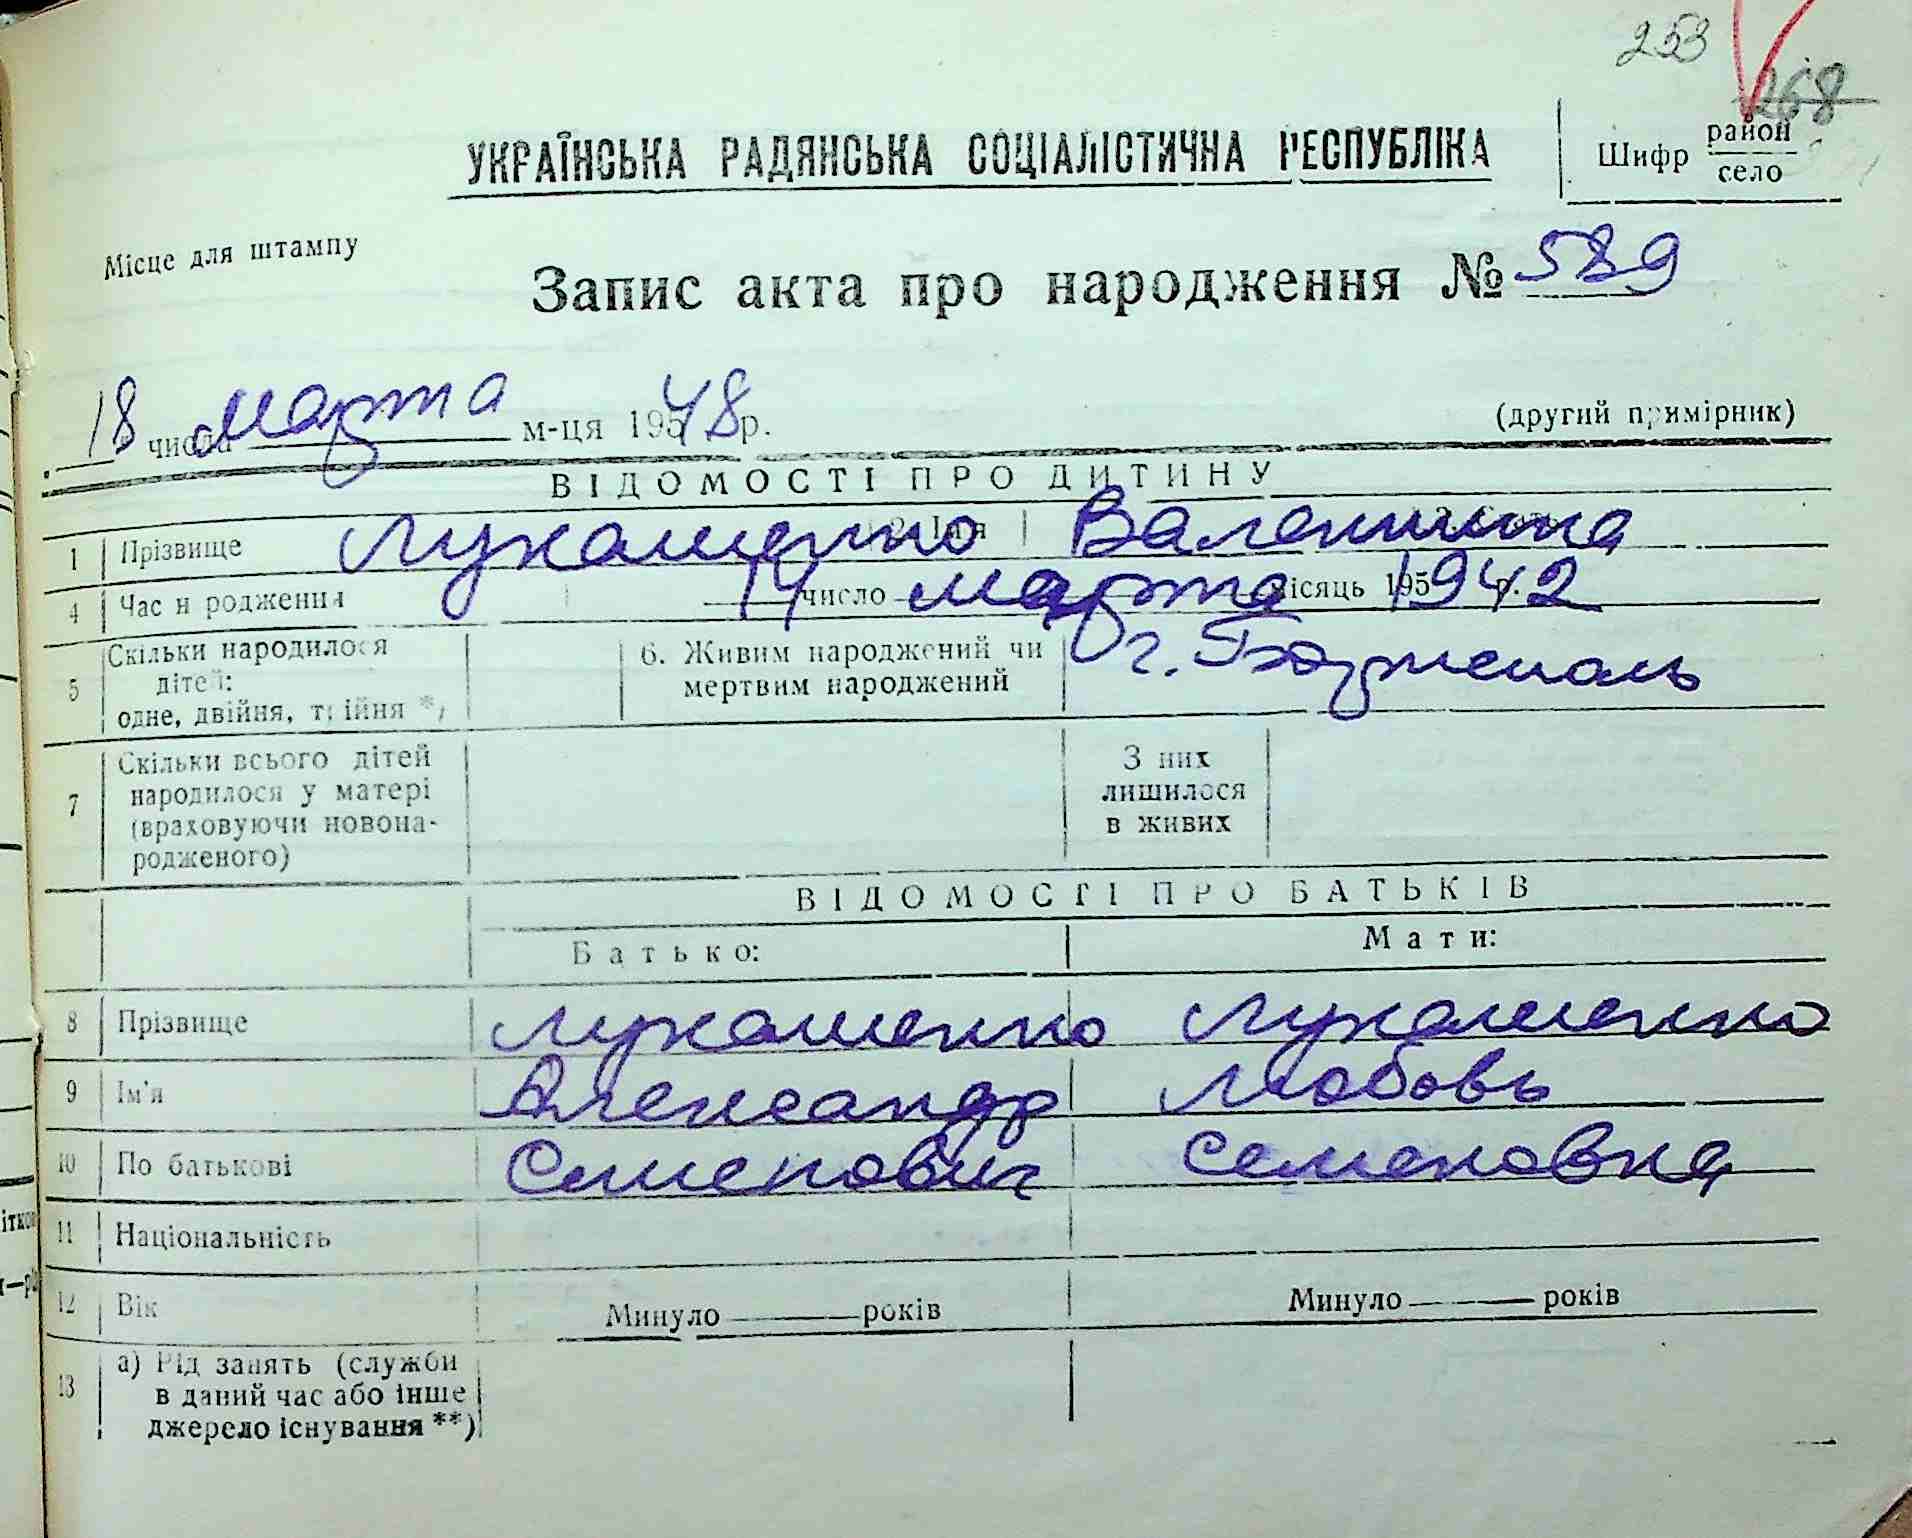 253
268
УКРАЇНСЬКА РАДЯНСЬКА СОЦІАЛІСТИЧНА РЕСПУБЛІКА
Шифр район
село
Місце для штампу
Запис акта про народження № 589
18 числа марта м-ця 195 48 р.
(другий примірник)
ВІДОМОСТІ ПРО ДИТИНУ
1 Прізвище Лукашенко Валентина
4 Час народження 14 число марта місяць 195 1942 р.
5 Скільки народилося дітей:
одне, двійня, трійня *)
6. Живим народжений чи
мертвим народжений
г. Тахтженаль
7 Скільки всього дітей
народилося у матері
(враховуючи новона-
родженого)
З них
лишилося
в живих
ВІДОМОСТІ ПРО БАТЬКІВ
Батько: Мати:
8 Прізвище Лукашенко Лукашенко
9 Ім'я Александр Любовь
10 По батькові Семенович Семеновна
11 Національність
12 Вік Минуло років Минуло років
13 а) Рід занять (служби
в даний час або інше
джерело існування **)